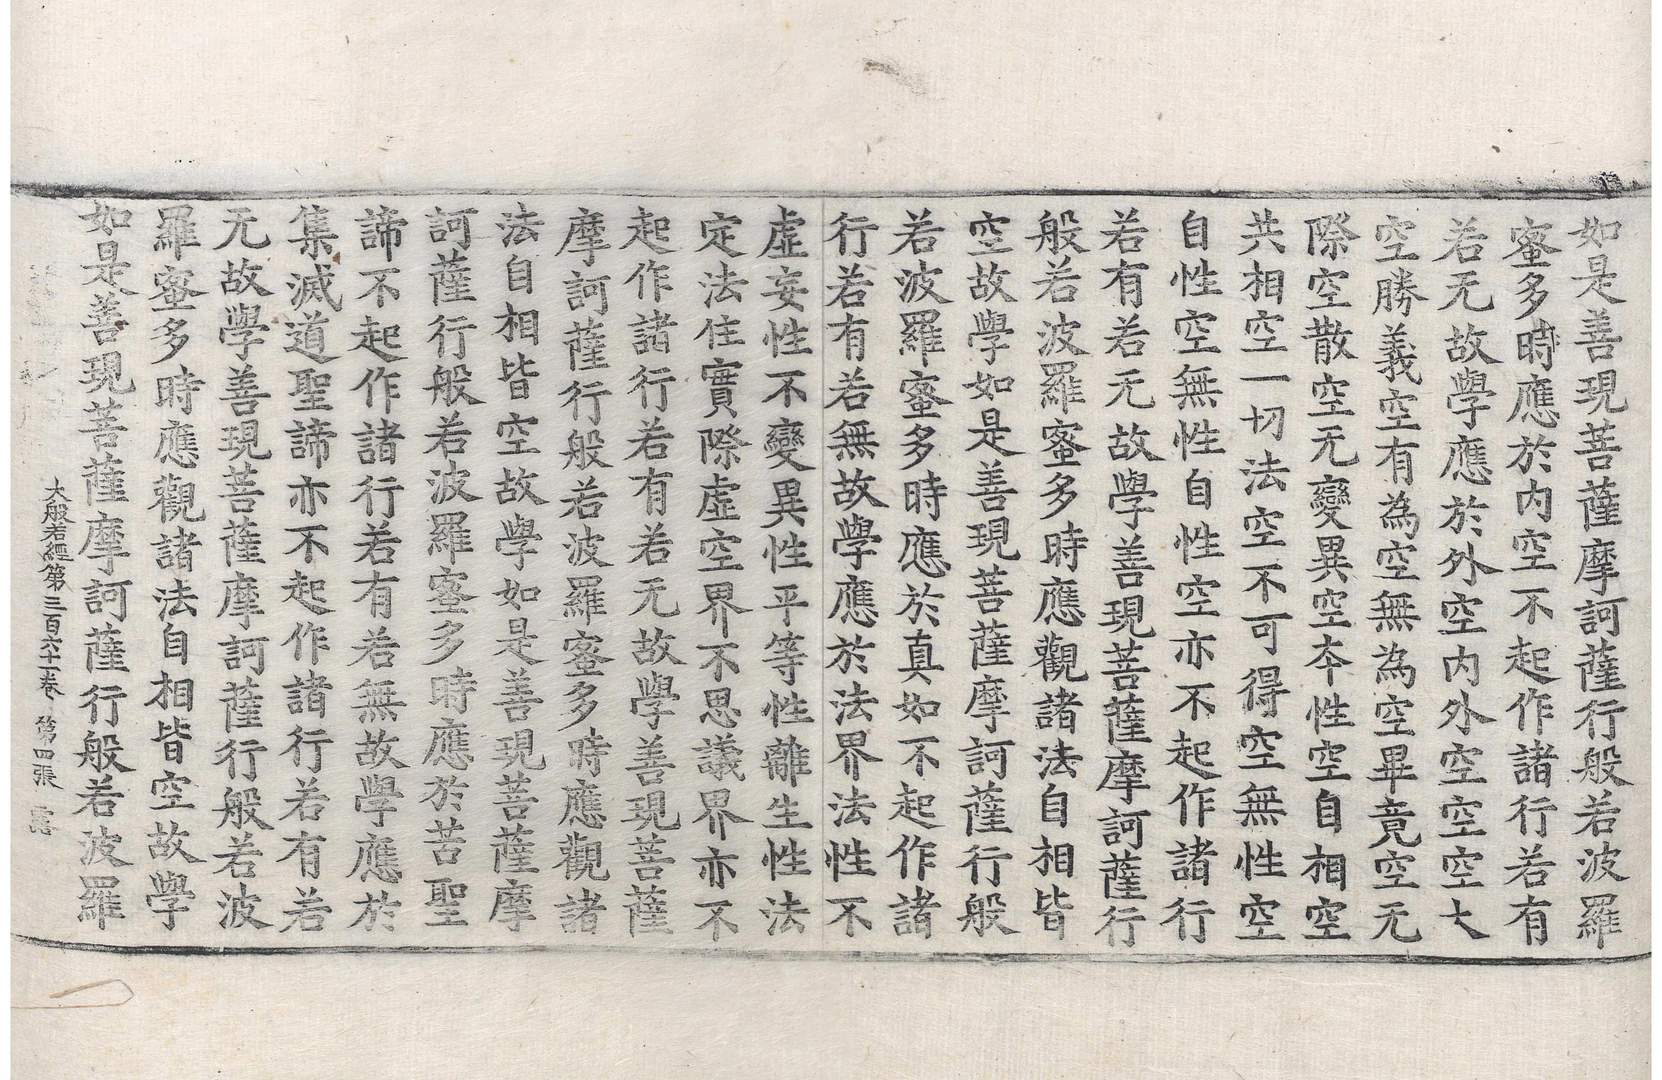 如是善現菩薩摩訶薩行般若波羅
蜜多時應於内空不起作諸行若有
若无故學應於外空内外空空空大
空勝義空有為空無為空畢竟空无
際空散空无變異空本性空自相空
共相空一切法空不可得空無性空
自性空無性自性空亦不起作諸行
若有若无故學善現菩薩摩訶薩行
般若波羅蜜多時應觀諸法自相皆
空故學如是善現菩薩摩訶薩行般
若波羅蜜多時應於真如不起作諸
行若有若無故學應於法界法性不
虛妄性不變異性平等性離生性法
定法住實際虛空界不思議界亦不
起作諸行若有若无故學善現菩薩
摩訶薩行般若波羅蜜多時應觀諸
法自相皆空故學如是善現菩薩摩
訶薩行般若波羅蜜多時應於苦聖
諦不起作諸行若有若無故學應於
集滅道聖諦亦不起作諸行若有若
无故學善現菩薩摩訶薩行般若波
羅蜜多時應觀諸法自相皆空故學
如是善現菩薩摩訶薩行般若波羅
大般若經第三百六十一卷 第四張